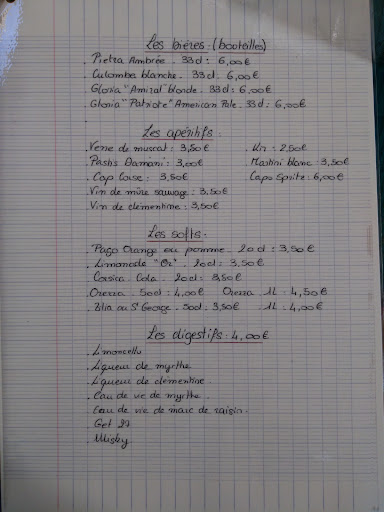 Les bières : (bouteilles)
. Pietra Ambrée . 33 cl : 6,00€
. Colomba blanche . 33 cl : 6,00€
. Gloria "Amiral" blonde . 33 cl : 6,00€
. Gloria "Patriote" American Pale . 33 cl : 6,00€
Les apéritifs :
. Verre de muscat : 3,50€ . Kir : 2,50€
. Pastis Damiani : 3,00€ . Martini blanc : 3,50€
. Cap Corse : 3,50€ . Caps Spritz : 6,00€
. Vin de mûre sauvage : 3,50€
. Vin de clémentine : 3,50€
Les softs :
. Pago Orange ou pomme . 20 cl : 3,50€
. Limonade "Or" . 20 cl : 3,50€
. Corsica Cola . 20 cl : 3,50€
. Orezza . 50 cl : 4,00€ Orezza . 1L : 4,50€
. Zilia ou St George . 50 cl : 3,50€ . 1L : 4,00€
Les digestifs : 4,00€
. Limoncello
. Liqueur de myrthe
. Liqueur de clémentine .
. Eau de vie de myrthe .
. Eau de vie de marc de raisin .
. Get 27
. Whisky